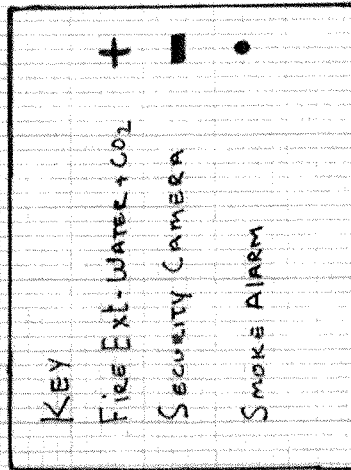 KEY
FIRE EXt- WATER + CO2
SECURITY CAMERA
SMOKE ALARM